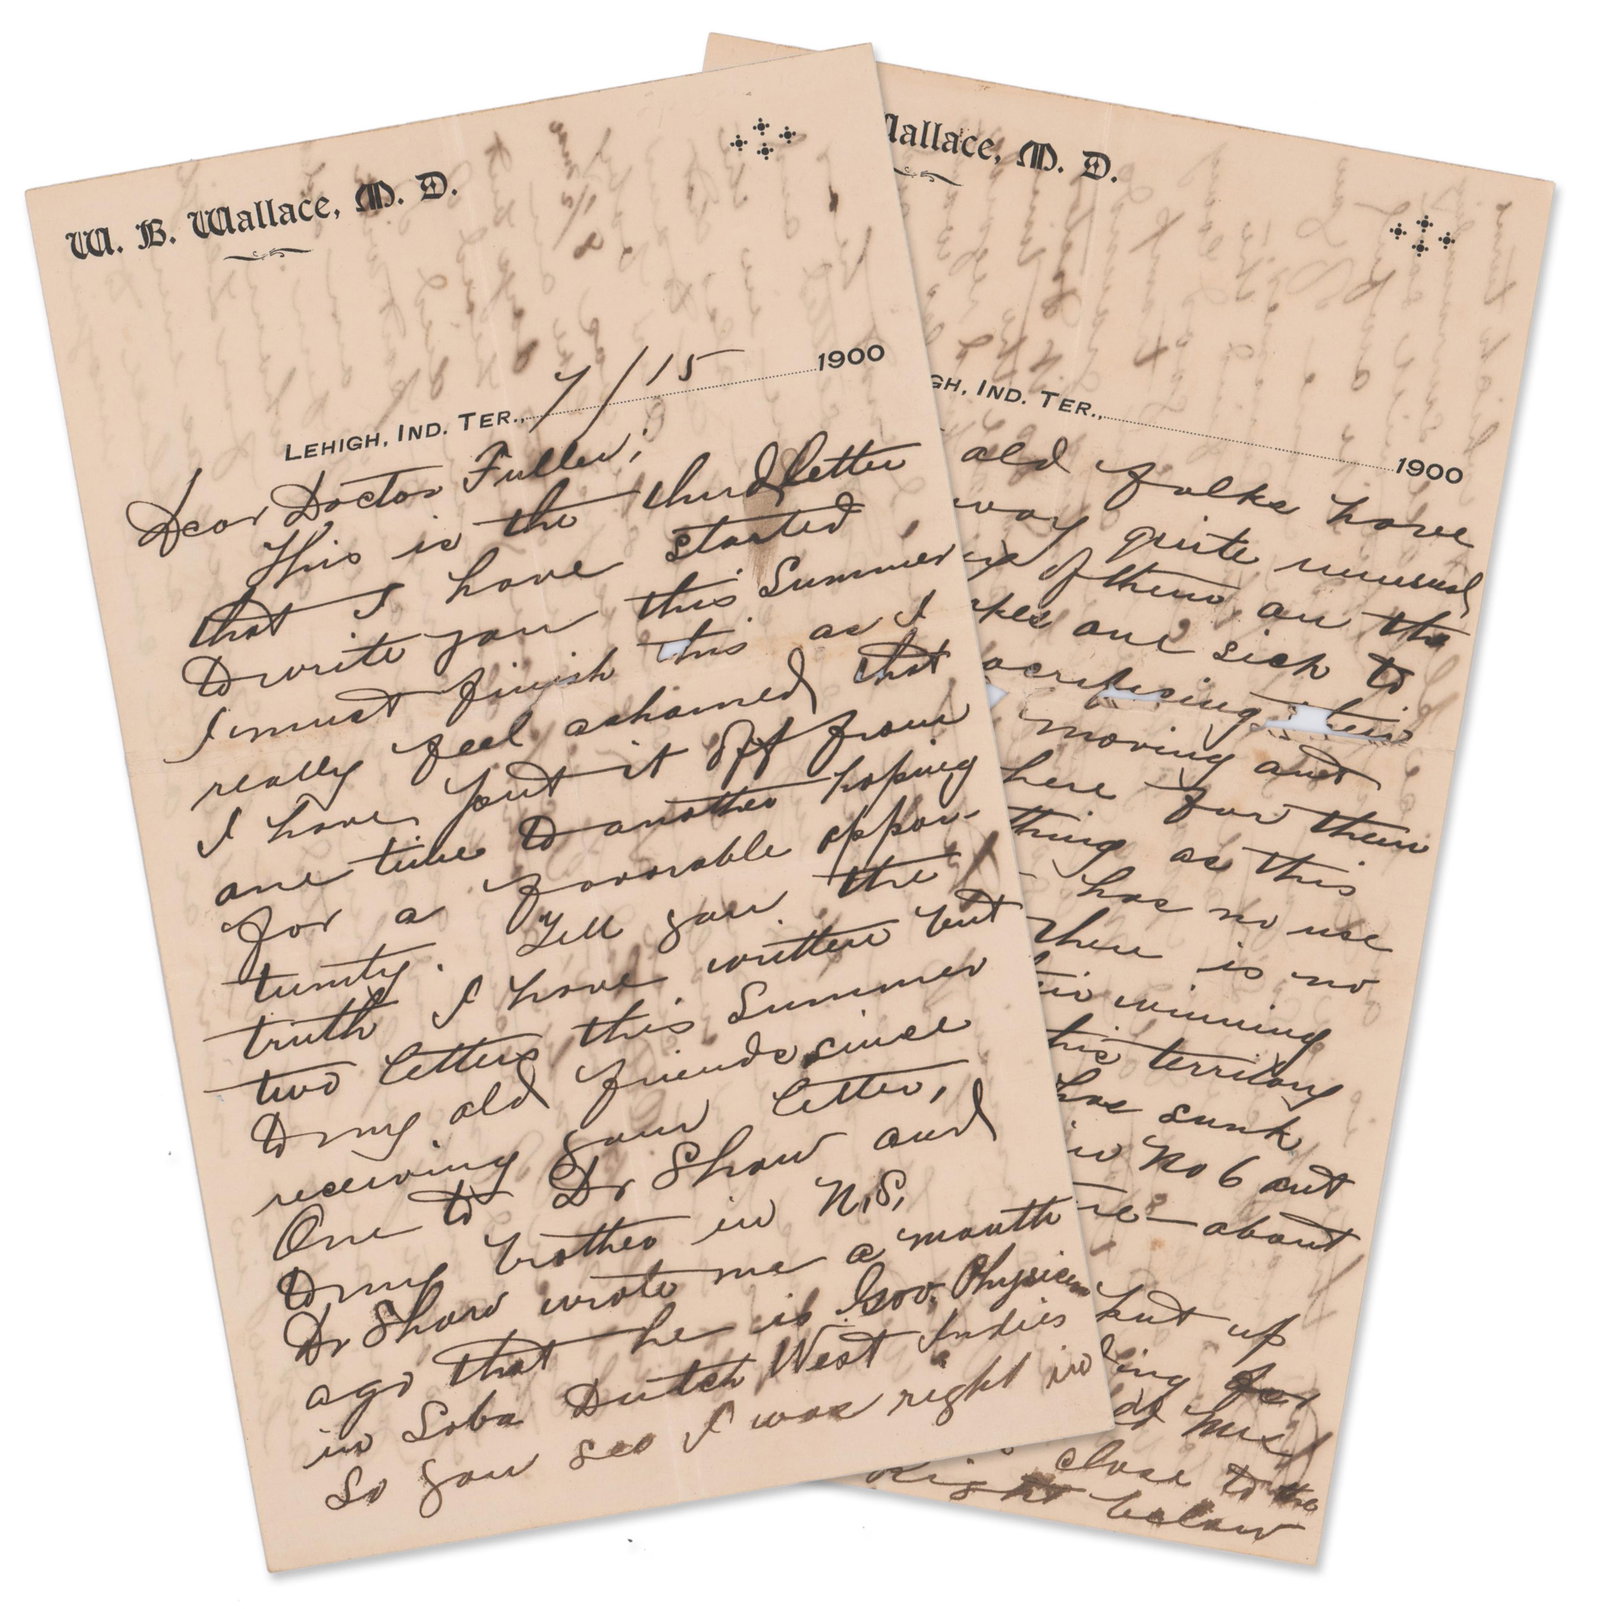 W. B. Wallace, M. D.
Lehigh, Ind. Ter., 7/15 1900
Dear Doctor Fuller;
This is the third letter
that I have started
to write you this Summer
I must finish this as I
really feel ashamed that
I have put it off from
one time to another hoping
for a favorable oppor-
tunity. Tell you the
truth I have written but
two letters this Summer
to my old friends since
receiving your letter,
One to Dr Shaw and
to my brother in N.S.
Dr Shaw wrote me a month
ago that he is Gov. Physician
in Soba Dutch West Indies
So you see I was right in
Wallace, M. D.
gh, Ind. Ter., 1900
old folks have
way quite unusual
of them, on the
kes one sick to
acrifising their
moving and
here for them
thing as this
has no use
there is no
winning
his territory
has sunk
in No 6 out
re - about
put up
ing for
his
close to the
Right below